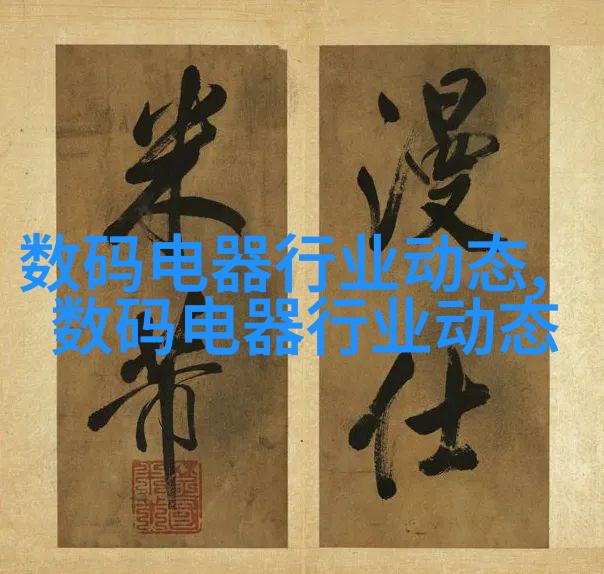 漫仕
米芾
数码电器行业动态,
数码电器行业动态